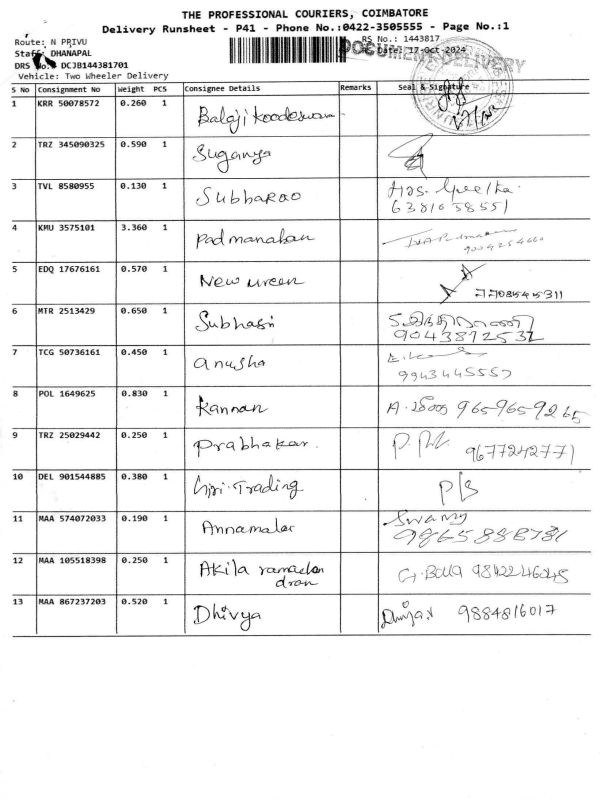 THE PROFESSIONAL COURIERS, COIMBATORE
Delivery Runsheet - P41 - Phone No.:0422-3505555 - Page No.:1
Route: N PRIVU
RS No.: 1443817
Staff: DHANAPAL
RS Date: 17-Oct-2024
DOCUMENT DELIVERY
DRS No.: DCJB144381701
Vehicle: Two Wheeler Delivery
S No Consignment No Weight PCS Consignee Details Remarks Seal & Signature
1 KRR 50078572 0.260 1 Balaji Koodeswaran
2 TRZ 345090325 0.590 1 Suganya
3 TVL 8580955 0.130 1 Subbarao
6381638551
4 KMU 3575101 3.360 1 Padmanaban
9009254660
5 EDQ 17676161 0.570 1 New ureen 7708545311
6 MTR 2513429 0.650 1 Subhasri
9043872532
7 TCG 50736161 0.450 1 anusha
9943445557
8 POL 1649625 0.830 1 Kannan A. 965-965-9265
9 TRZ 25029442 0.250 1 Prabhakar. 9677242771
10 DEL 901544885 0.380 1 Giri. Trading
11 MAA 574072033 0.190 1 Annamalai Swamy
9865888781
12 MAA 105518398 0.250 1 Akila ramachan 9842246045
dran
13 MAA 867237203 0.520 1 Dhivya 9884816017